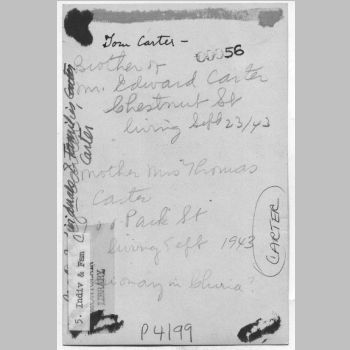 Tom Carter -
00056
Brother of
Wm. Edward Carter
Chestnut St
living Sept 23/43
mother Mrs Thomas
Carter
Park St
living Sept 1943
in
CARTER
P4199
Individuals & Families
Carter
5. Indiv & Fam
LIBRARY